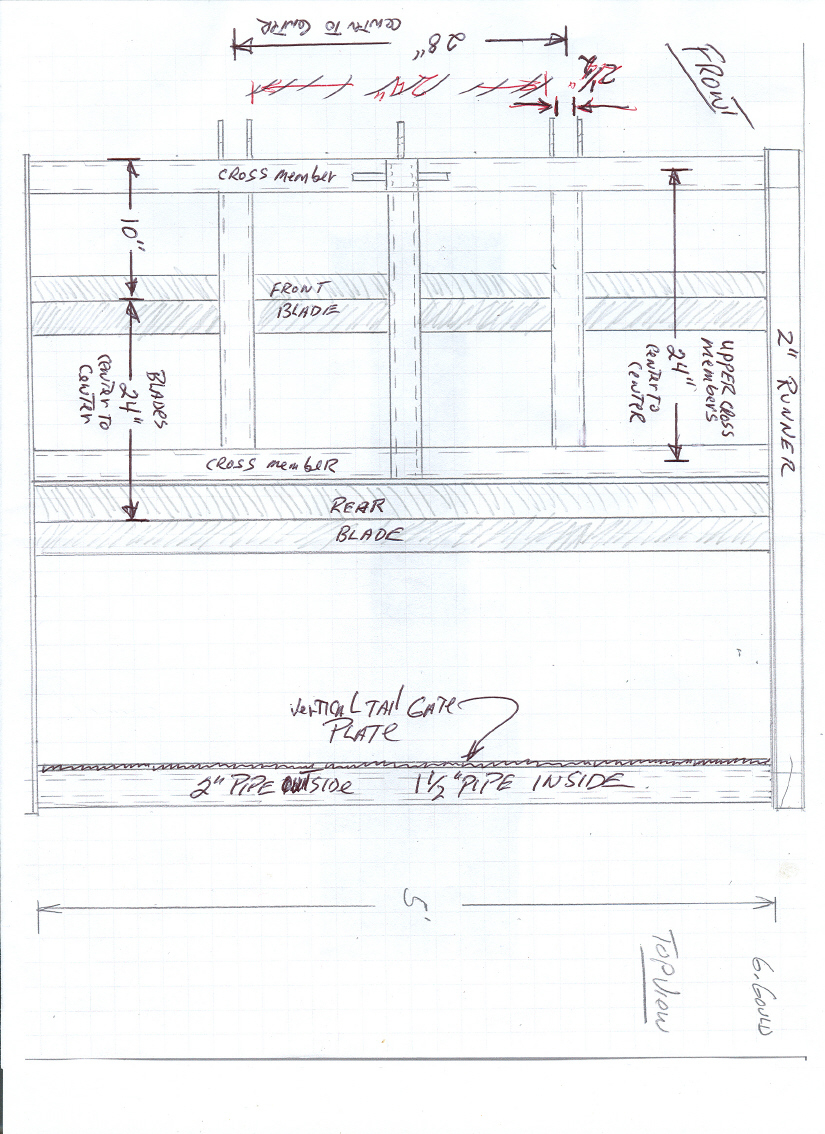 28"
CENTER TO CENTER
24"
2 1/2"
FRONT
CROSS member
10"
FRONT
BLADE
BLADES
24"
CENTER TO
CENTER
UPPER CROSS
members
24"
CENTER TO
CENTER
2" RUNNER
CROSS member
REAR
BLADE
VERTICAL TAIL GATE
PLATE
2" PIPE OUTSIDE 1 1/2" PIPE INSIDE
5'
TOP VIEW
G. GOULD